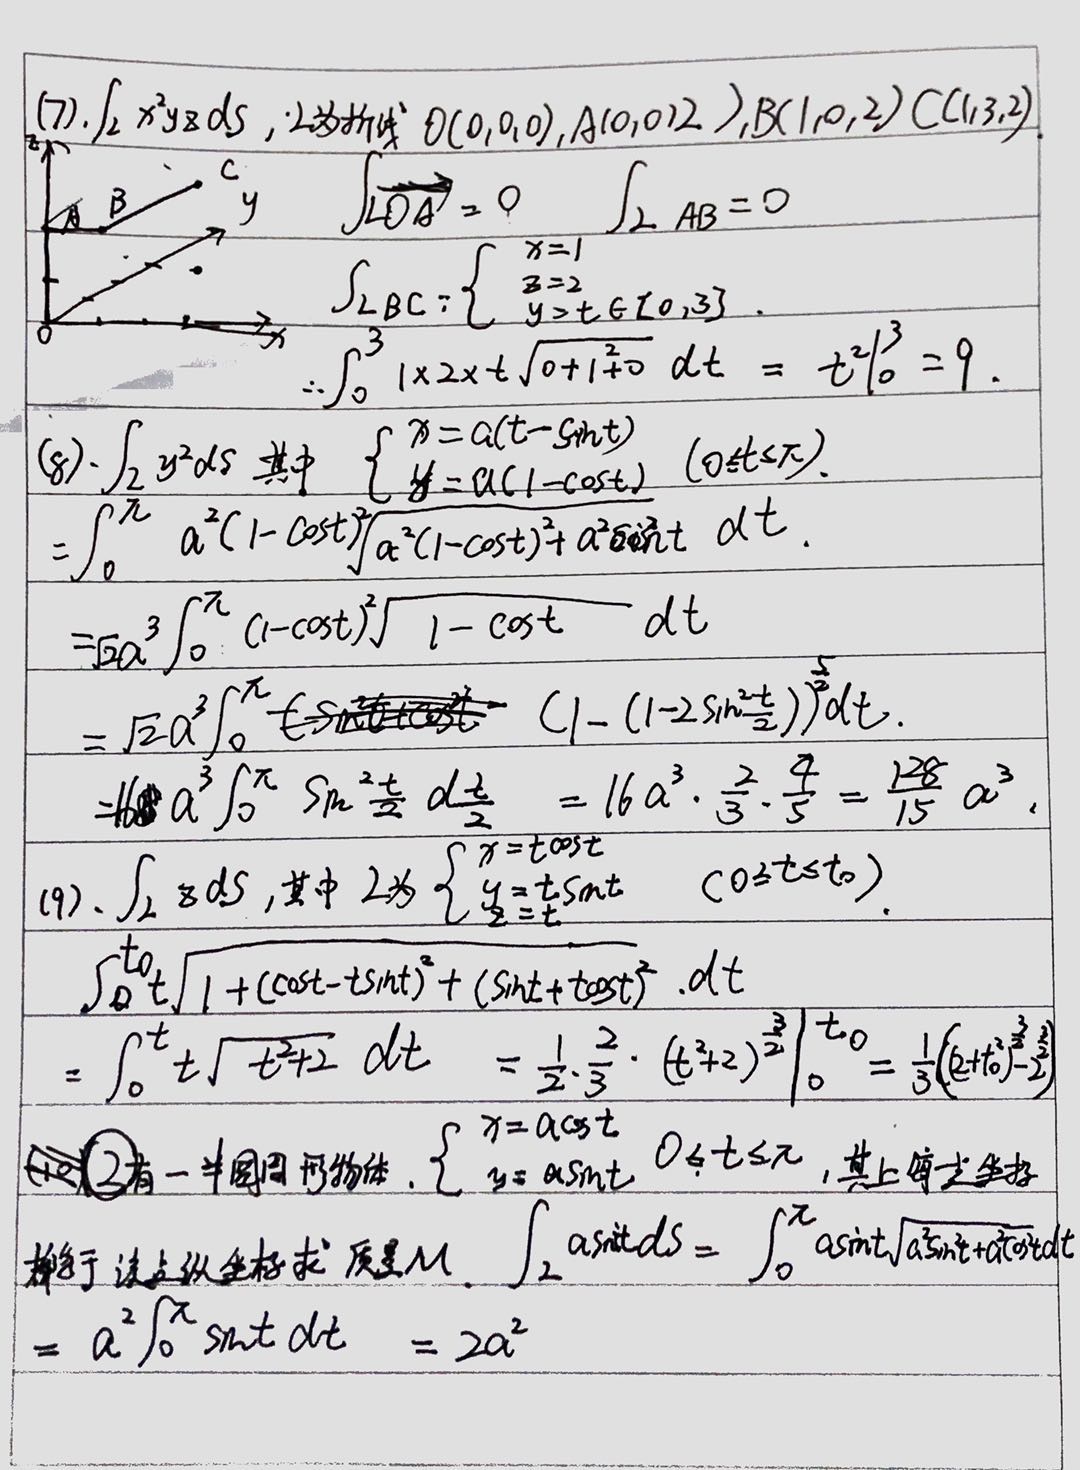 (7). ∫_L x²yz ds, L为折线 O(0,0,0), A(0,0,2), B(1,0,2) C(1,3,2).
z C y A B O x
∫_{LOA} = 0 ∫_{L AB} = 0
∫_{L BC}: { x=1 z=2 y=t∈[0,3].
∴ ∫_0^3 1×2×t √(0+1²+0) dt = t²|_0^3 = 9.
(8). ∫_L y² ds 其中 { x=a(t-sint) y=a(1-cost) (0≤t≤π).
= ∫_0^π a²(1-cost)² √(a²(1-cost)²+a²sin²t) dt.
= √2a³ ∫_0^π (1-cost)² √(1-cost) dt
= √2a³ ∫_0^π (1-(1-2sin²t/2))^{5/2} dt.
= 16 a³ ∫_0^π sin²t/2 d t/2 = 16a³ · 2/3 · 4/5 = 128/15 a³.
(9). ∫_L z ds, 其中 L为 { x=tcost y=tsint z=t (0≤t≤t₀).
∫_0^{t₀} t √(1+(cost-tsint)²+(sint+tcost)²) .dt
= ∫_0^t t √(t²+2) dt = 1/2 · 2/3 · (t²+2)^{3/2} |_0^{t₀} = 1/3((2+t₀²)^{3/2}-2^{3/2})
② 有一半圆周形物体. { x=acost y=asint 0≤t≤π, 其上每点坐标
于该点纵坐标求 质量M. ∫_L asint ds = ∫_0^π asint √(a²sin²t+a²cos²t) dt
= a² ∫_0^π sint dt = 2a²